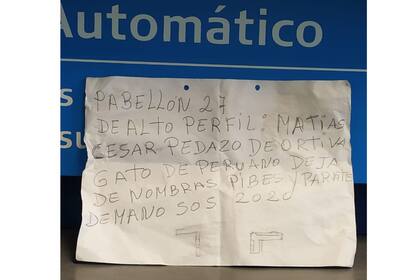 Automático
s
su
PABELLON 27
DE ALTO PERFIL: MATIAS
CESAR PEDAZO DE ORTIVA
GATO DE PERUANO DEJA
DE NOMBRAS PIBES Y PARATE
DE MANO SOS 2020